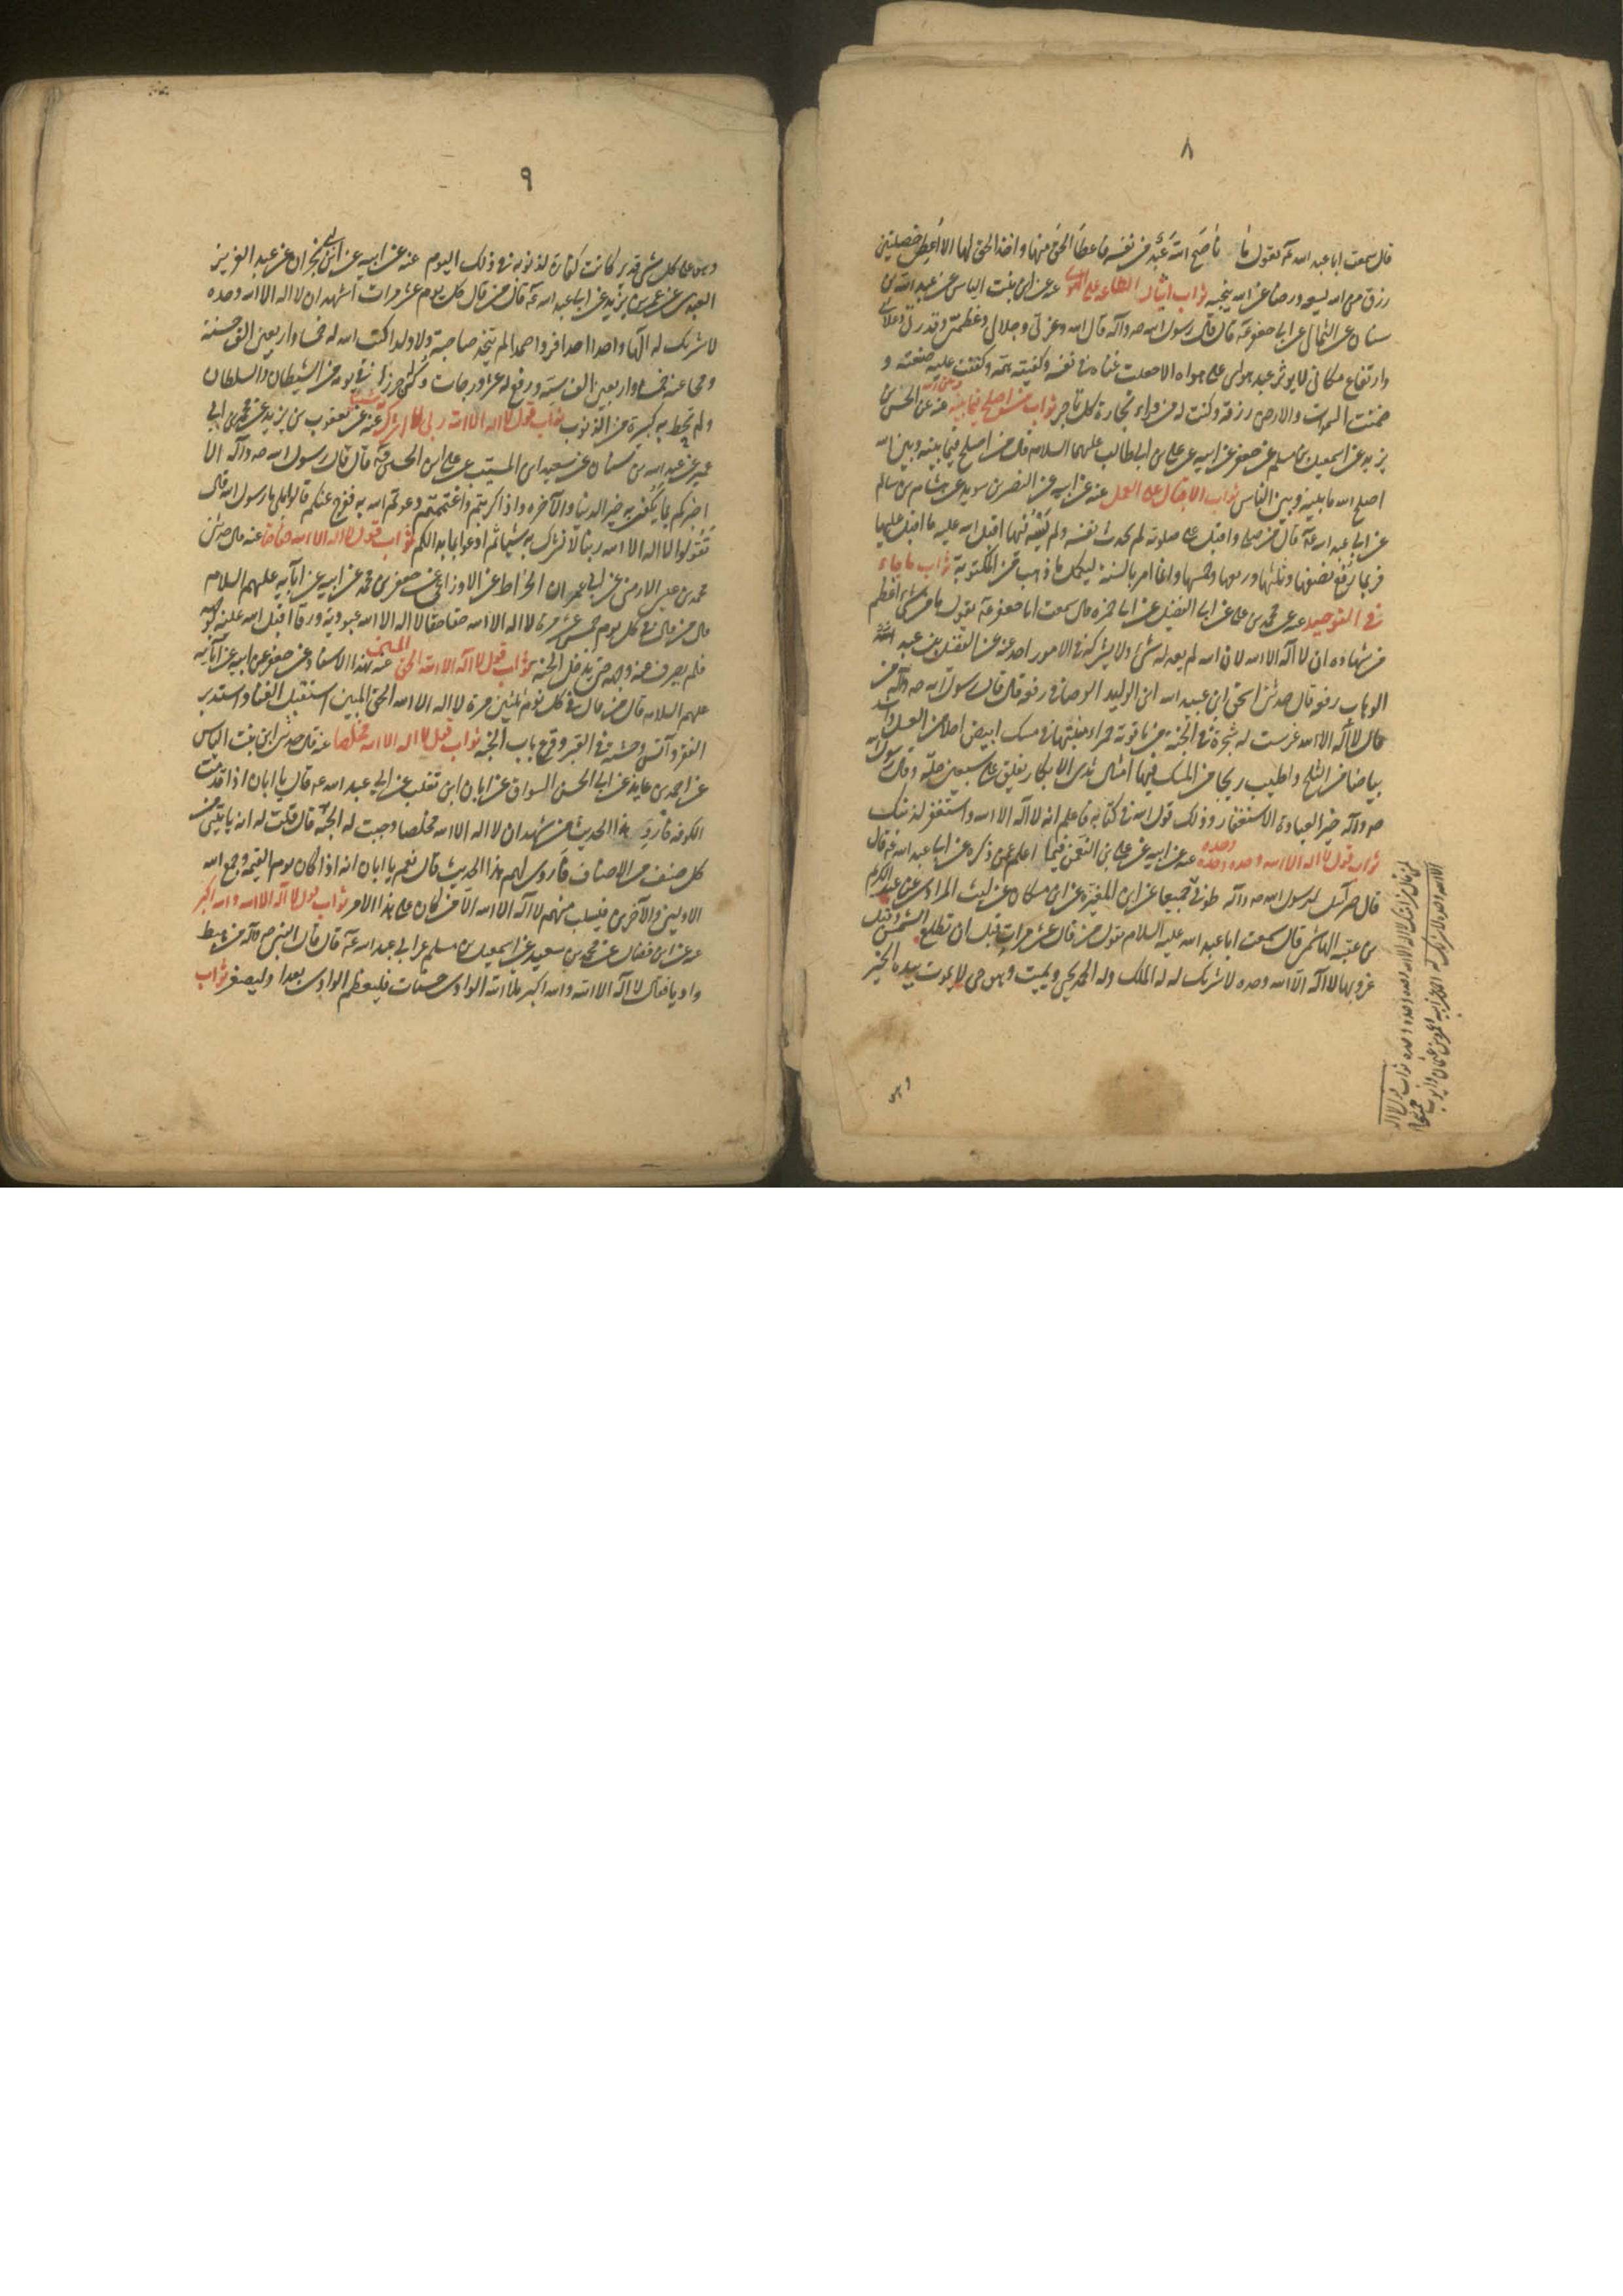 ٨
قال سمعت ابا عبد الله ع يقول ما ناصح الله عبد من نفسه فاعطا الحق منها واخذ الحق لها الا اعطى خصلتين
رزق من الله يسعه ورضا عن الله ينجيه ثواب ايثار الطاعة على الهوى عنه عن ابن بنت الياس عن عبد الله بن
سنان عن الثمالي عن ابي جعفر ع قال قال رسول الله صه وآله قال الله وعزتي وجلالي وعظمتي وقدرتي وعلائي
وارتفاع مكاني لا يوثر عبد هواي على هواه الا جعلت غناه في نفسه وكفيته همه وكففت عليه ضيعته و
ضمنت السموات والارض رزقه وكنت له من وراء تجارة كل تاجر ثواب من اصلح فيما بينه وبين الله عنه عن الحسن بن
يزيد عن اسمعيل بن مسلم عن جعفر عن ابيه عن علي بن ابي طالب عليهما السلام قال من اصلح فيما بينه وبين الله
اصلح الله ما بينه وبين الناس ثواب الاقبال على العمل عنه عن ابيه عن النضر بن سويد عن هشام بن سالم
عن ابي عبد الله ع قال من صلى واقبل على صلوته لم يحدث نفسه ولم يسه فيها اقبل الله عليه ما اقبل عليها
فربما رفع نصفها وثلثها وربعها وخمسها وانما امر بالسنة ليكمل ما ذهب من المكتوبة ثواب ما جاء
في التوحيد عنه عن محمد بن علي عن ابي الفضيل عن ابي حمزه قال سمعت ابا جعفر ع يقول ما من شئ اعظم
من شهادة ان لا اله الا الله لان الله لم يعدله شئ ولا يشركه في الامور احد عنه عن الفضل بن عبد
الوهاب رفعه قال حدثني اسحق ابن عبيد الله ابن الوليد الوصافي رفعه قال قال رسول الله صه وآله من
قال لا اله الا الله غرست له شجرة في الجنة من ياقوتة حمراء منبتها في مسك ابيض احلى من العسل واشد
بياضا من الثلج واطيب ريحا من المسك فيها امثال ثدي الابكار يفلق على سبعين حلة وقال رسول الله
صه وآله خير العبادة الاستغفار وذلك قول الله في كتابه فاعلم انه لا اله الا الله واستغفر لذنبك
ثواب قول لا اله الا الله وحده وحده وحده عنه عن ابيه عن علي بن النعمن فيما اعلم عمن ذكره عن ابي عبد الله ع قال
قال جبرئيل لرسول الله صه وآله طوبى جميعا عن ابن المغيرة عن ابن مسكان عن ليث المرادي عن عبد الكريم
بن عتبه الهاشمي قال سمعت ابا عبد الله عليه السلام يقول من قال عشر مرات قبل ان تطلع الشمس وقبل
غروبها لا اله الا الله وحده لا شريك له له الملك وله الحمد يحيي ويميت وهو حي لا يموت بيده الخير
وهو
لمن قال من امتك لا اله الا الله وحده وحده وحده ثواب قول لا اله
الا الله وحده لا شريك له
٩
وهو على كل شئ قدير كانت كفارة لذنوبه في ذلك اليوم عنه عن ابيه عن ابن ابي نجران عن عبد العزيز
العبدي عن عمر بن يزيد عن ابي عبد الله ع قال من قال كل يوم عشر مرات اشهد ان لا اله الا الله وحده
لا شريك له الها واحدا احدا فردا صمدا لم يتخذ صاحبة ولا ولدا كتب الله له خمسا واربعين الف حسنة
ومحا عنه خمسا واربعين الف سيئة ورفع له عشر درجات وكن حرزا في يومه من الشيطان والسلطان
ولم تحط به كبيرة من الذنوب ثواب قول لا اله الا الله ربي لا اشرك به شيئا عنه عن يعقوب بن يزيد عن محمد بن ابي
عمير عن عبد الله بن سنان عن سعيد ابن المسيب عن علي ابن الحسين ع قال قال رسول الله صه وآله الا
اخبركم بما يكون به خير الدنيا والآخره واذا كربتم واغتممتم دعوتم الله به ففرج عنكم قالوا بلى يا رسول الله قال
تقولوا لا اله الا الله ربنا لا نشرك به شيئا ثم ادعوا بما بدا لكم ثواب قول لا اله الا الله حقا حقا عنه قال حدثني
محمد بن عيسى الارمني عن ابي عمران الخراط عن الاوزاعي عن جعفر بن محمد عن ابيه عن آبائه عليهم السلام
قال من قال في كل يوم خمس عشر مرة لا اله الا الله حقا حقا لا اله الا الله عبودية ورقا اقبل الله عليه بوجهه
فلم يصرف عنه وجهه حتى يدخل الجنة ثواب قول لا اله الا الله الحق المبين عنه بهذا الاسناد عن جعفر عن ابيه عن آبائه
عليهم السلام قال من قال في كل يوم ثلثين مرة لا اله الا الله الحق المبين استقبل الغنا واستدبر
الفقر وآنس وحشته في القبر وقرع باب الجنة ثواب قول لا اله الا الله مخلصا عنه قال حدثني ابن بنت الياس
عن احمد بن عايذ عن ابي الحسن السواق عن ابان ابن تغلب عن ابي عبد الله ع قال يا ابان اذا قدمت
الكوفه فارو هذا الحديث من شهد ان لا اله الا الله مخلصا وجبت له الجنة قال قلت له انه يأتيني من
كل صنف من الاصناف فأروي لهم هذا الحديث قال نعم يا ابان انه اذا كان يوم القيمة وجمع الله
الاولين والآخرين فيسلب منهم لا اله الا الله الا من كان على هذا الامر ثواب قول لا اله الا الله والله اكبر
عنه عن ابن فضال عن محمد بن سعيد عن اسمعيل بن مسلم عن ابي عبد الله ع قال قال النبي ص وآله من هبط
واديا فقال لا اله الا الله والله اكبر ملأ الله الوادي حسنات فليعظم الوادي بعد او ليصغر ثواب